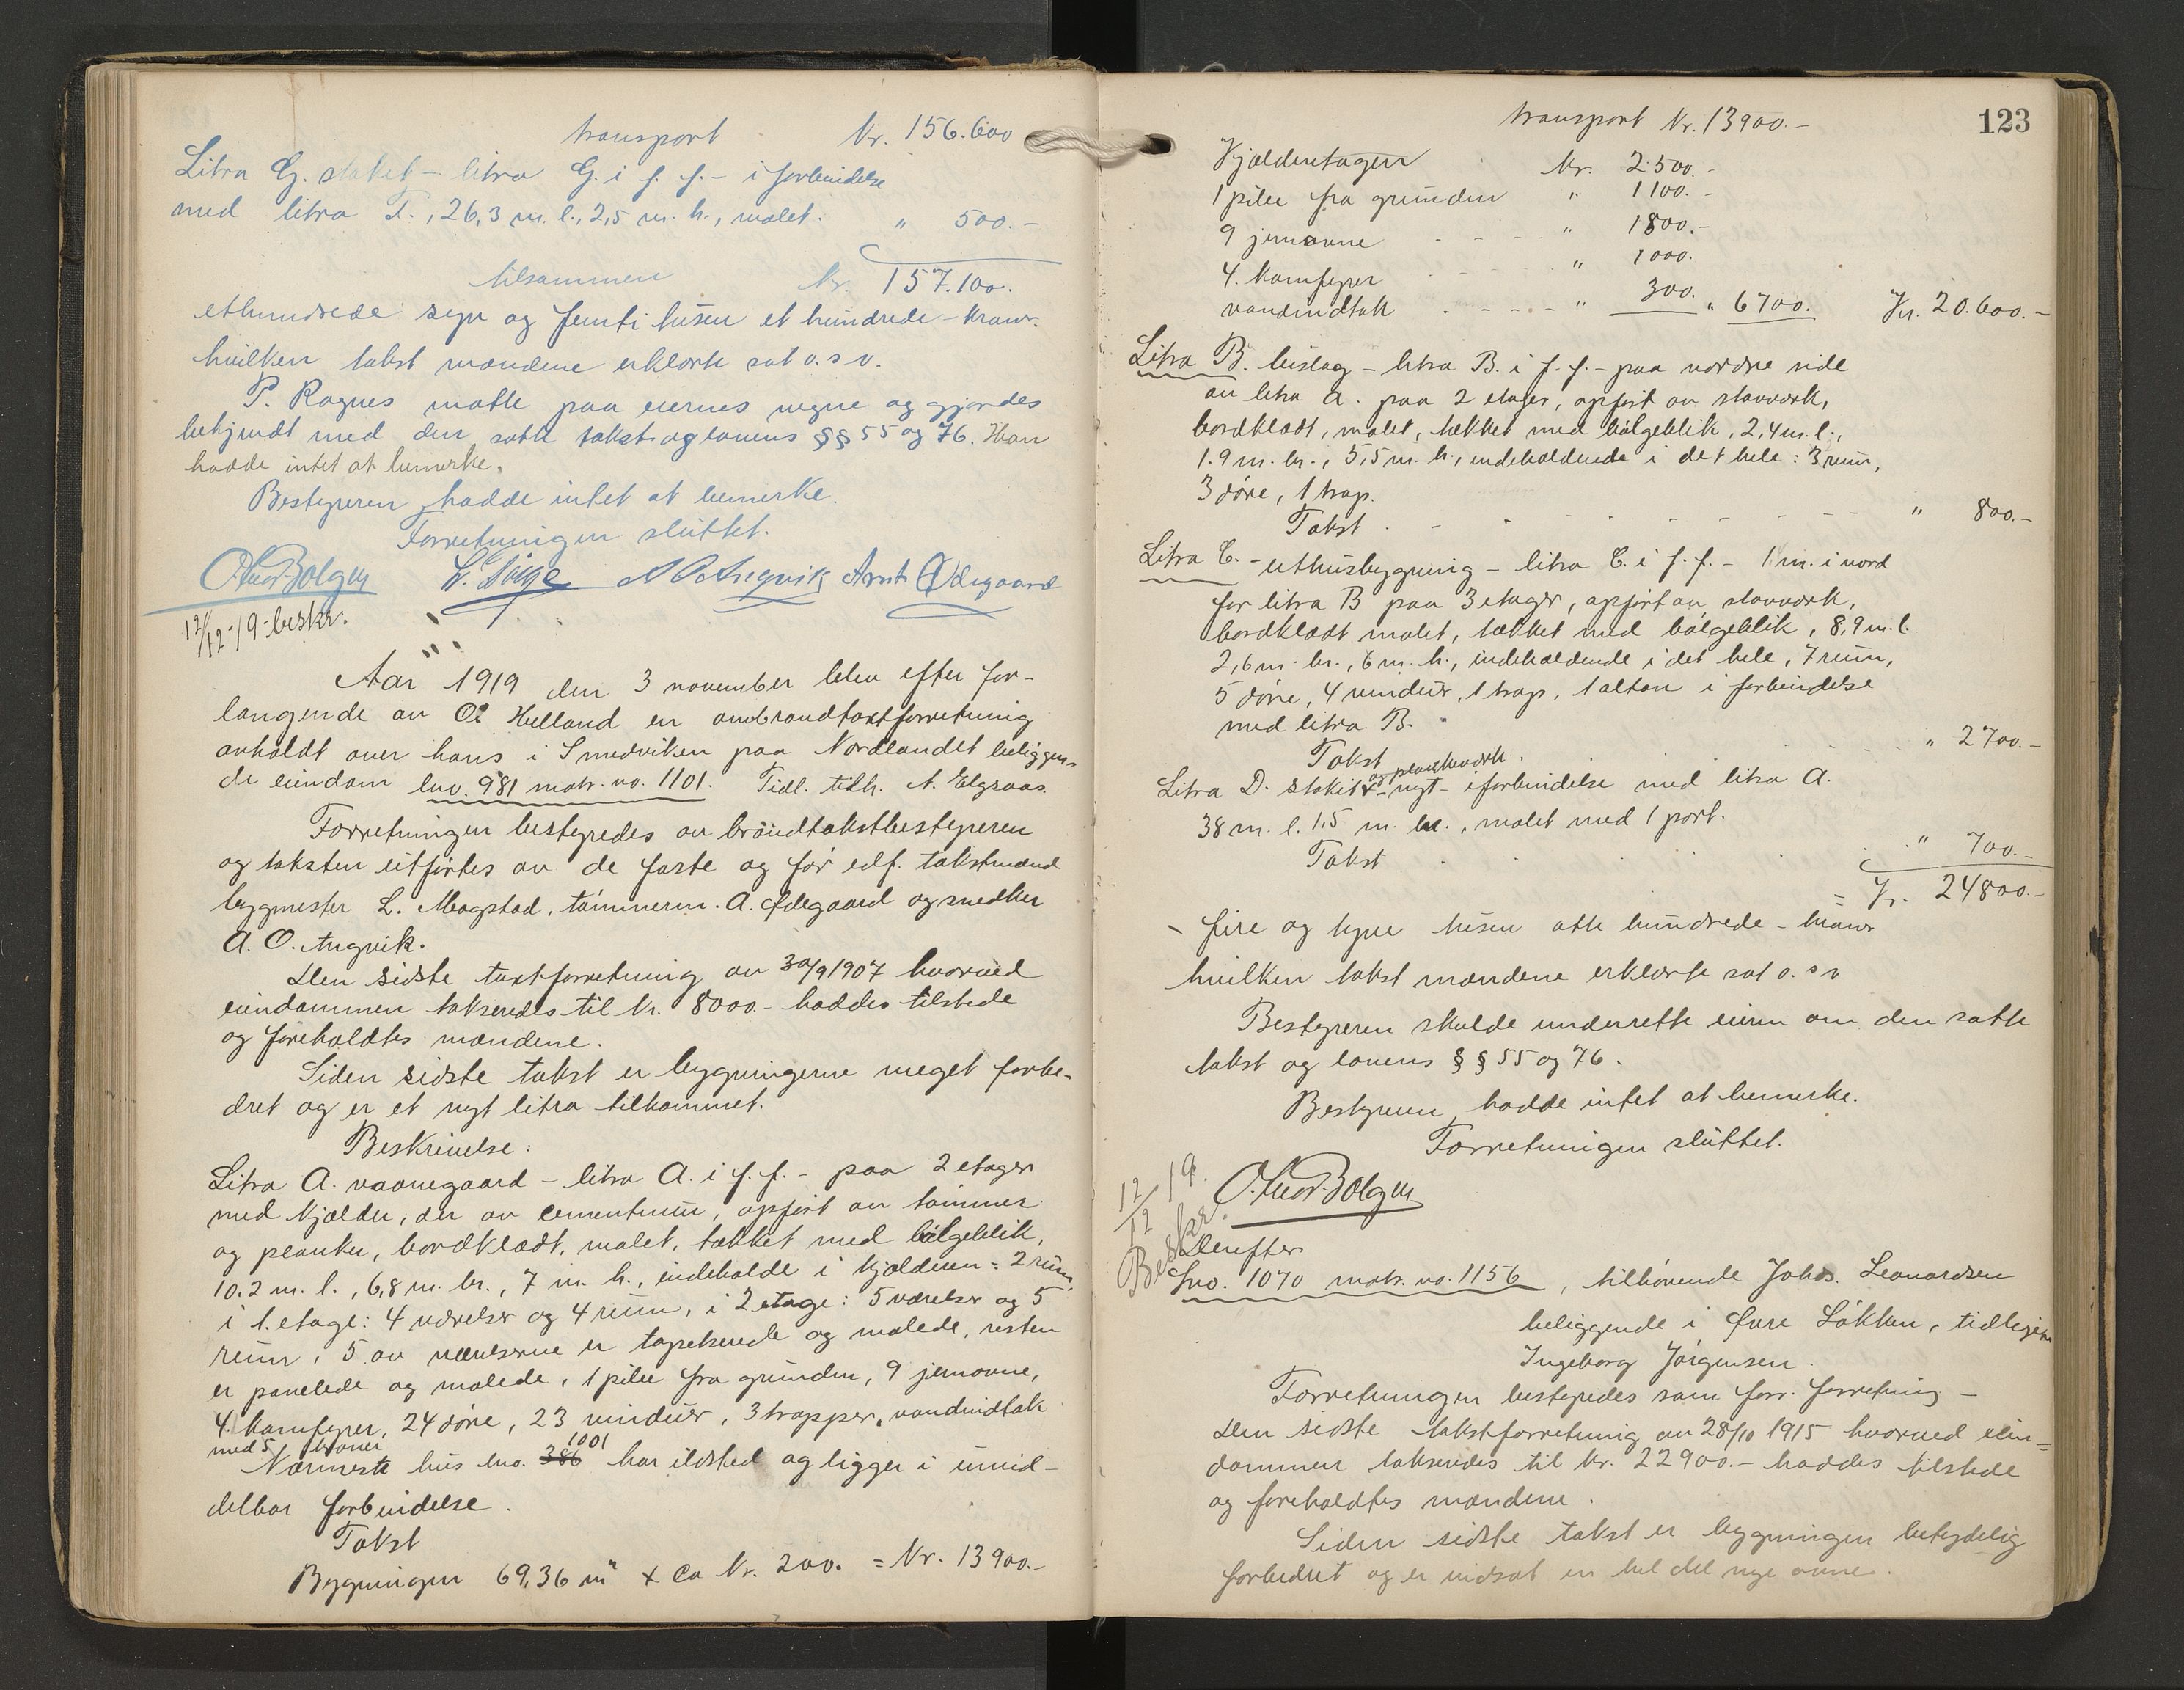 transport Kr. 156.600
Litra G. staket - litra G. i f. f. - i forbindelse
med litra F., 26,3 m. l., 2,5 m. h., malet. " 500.-
tilsammen Kr. 157.100.
ethundrede syv og femti tusen et hundrede - kroner.
hvilken takst mændene erklærte sat o. s. v.
P. Ragnes møtte paa eiernes vegne og gjordes
bekjendt med den satte takst og lovens §§ 55 og 76. Han
hadde intet at bemerke.
Bestyreren hadde intet at bemerke.
Forretningen sluttet.
A O Angvik Arnt Ødegaard
12/12-19-beskr.
Aar 1919 den 3 november blev efter for-
langende av Ol Helland en ombrandtaxtforretning
avholdt over hans i Smedviken paa Nordlandet beliggen-
de eiendom lno. 981 matr. no. 1101. Tidl. tilh. A. Elgsaas.
Forretningen bestyredes av brandtakstbestyreren
og taksten utførtes av de faste og før edf. takstmænd
bygmester L. Magstad, tømmerm. A. Ødegaard og snedker
A. O. Angvik.
Den sidste taxtforretning av 30/9 1907 hvorved
eiendommen takseredes til Kr. 8000.- haddes tilstede
og foreholdtes mændene.
Siden sidste takst er bygningerne meget forbe-
dret og er et nyt litra tilkommet.
Beskrivelse:
Litra A. vaanegaard - litra A. i f. f. - paa 2 etager
med kjælder, der av cementmur, opført av tømmer
og planker, bordklædt, malet, tækket med bølgeblik,
10.2 m. l., 6,8 m. br., 7 m. h., indeholde i kjælderen: 2 rum,
i 1. etage: 4 værelser og 4 rum, i 2 etage: 5 værelser og 5
rum, 5 av værelserne er tapetserede og malede, resten
er panelede og malede, 1 pibe fra grunden, 9 jernovne,
4. komfyrer, 24 døre, 23 vinduer, 3 trapper, vandindtak
med 5 kraner
1001
Nærmeste hus lno. 386 har ildsted og ligger i umid-
delbar forbindelse.
Takst
Bygningen 69,36 m² x Ca Kr. 200. = Kr. 13900.-
transport Kr. 13900.-
123
Kjælderetagen Kr. 2500.-
1 pibe fra grunden " 1100.-
9 jernovne - - - - " 1800.-
4. komfyrer - - - " 1000.
vandindtak - - - - " 300. " 6700. Kr. 20.600.-
Litra B. bislag - litra B. i f. f. - paa nordre side
av litra A. paa 2 etager, opført av stavverk,
bordklædt, malet, tækket med bølgeblik, 2,4 m. l.,
1.9 m. br., 5,5 m. h., indeholdende i det hele: 3 rum,
3 døre, 1 trap.
Takst. - - - - - - - - " 800.-
Litra C. - uthusbygning - litra C. i f. f. - 1 m. i nord
for litra B paa 3 etager, opført av stavverk,
bordklædt malet, tækket med bølgeblik, 8,9 m. l.
2,6 m. br., 6 m. h., indeholdende i det hele, 7 rum,
5 døre, 4 vinduer, 1 trap, 1 altan i forbindelse
med litra B.
Takst - - - - " 2700.-
og plankeverk.
Litra D. stakit - nyt - i forbindelse med litra A.
38 m. l. 1,5 m. h., malet med 1 port.
Takst . . . . . " 700.-
= Kr. 24800.-
- fire og tyve tusen otte hundrede - kroner
hvilken takst mændene erklærte sat o. s v
Bestyreren skulde underrette eieren om den satte
takst og lovens § § 55 og 76.
Bestyreren hadde intet at bemerke.
Forretningen sluttet.
12/12 19.
Beskr.
Derefter
Lno. 1070 matr. no. 1156, tilhørende Johs. Leonardsen
beliggende i Øvre Løkken, tidligere
Ingeborg Jørgensen.
Forretningen bestyredes som forr. forretning -
Den sidste takstforretning av 28/10 1915 hvorved eien-
dommen takseredes til kr. 22900.- haddes tilstede
og foreholdtes mændene.
Siden sidste takst er bygningen betydelig
forbedret og er indsat en hel del nye ovne.